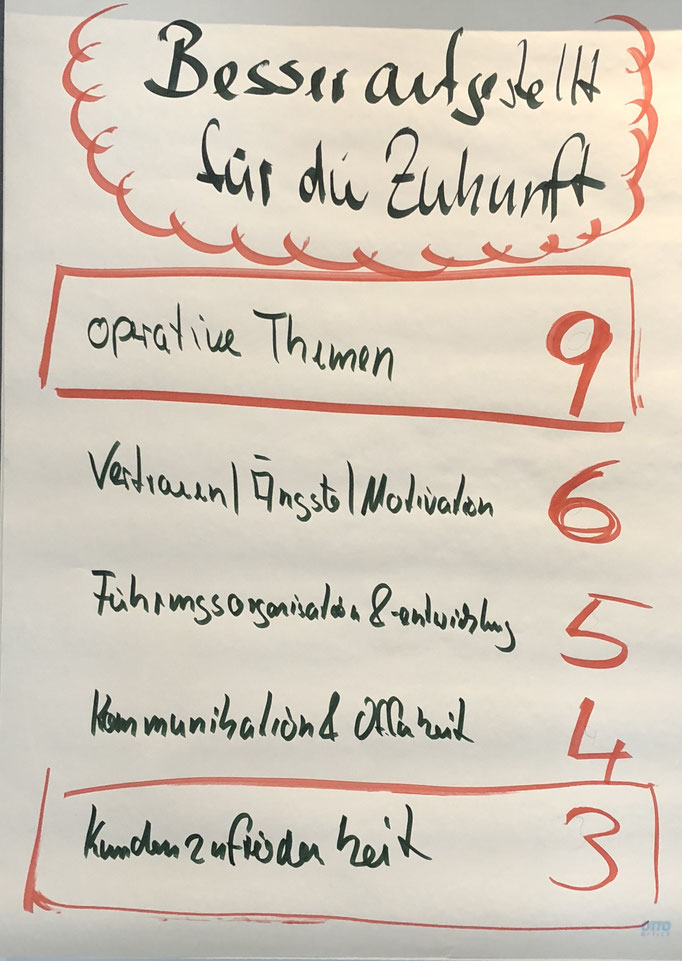 Besser aufgestellt
für die Zukunft
operative Themen 9
Vertrauen/Ängste/Motivation 6
Führungsorganisation & -entwicklung 5
Kommunikation & Offenheit 4
Kundenzufriedenheit 3
OTTO